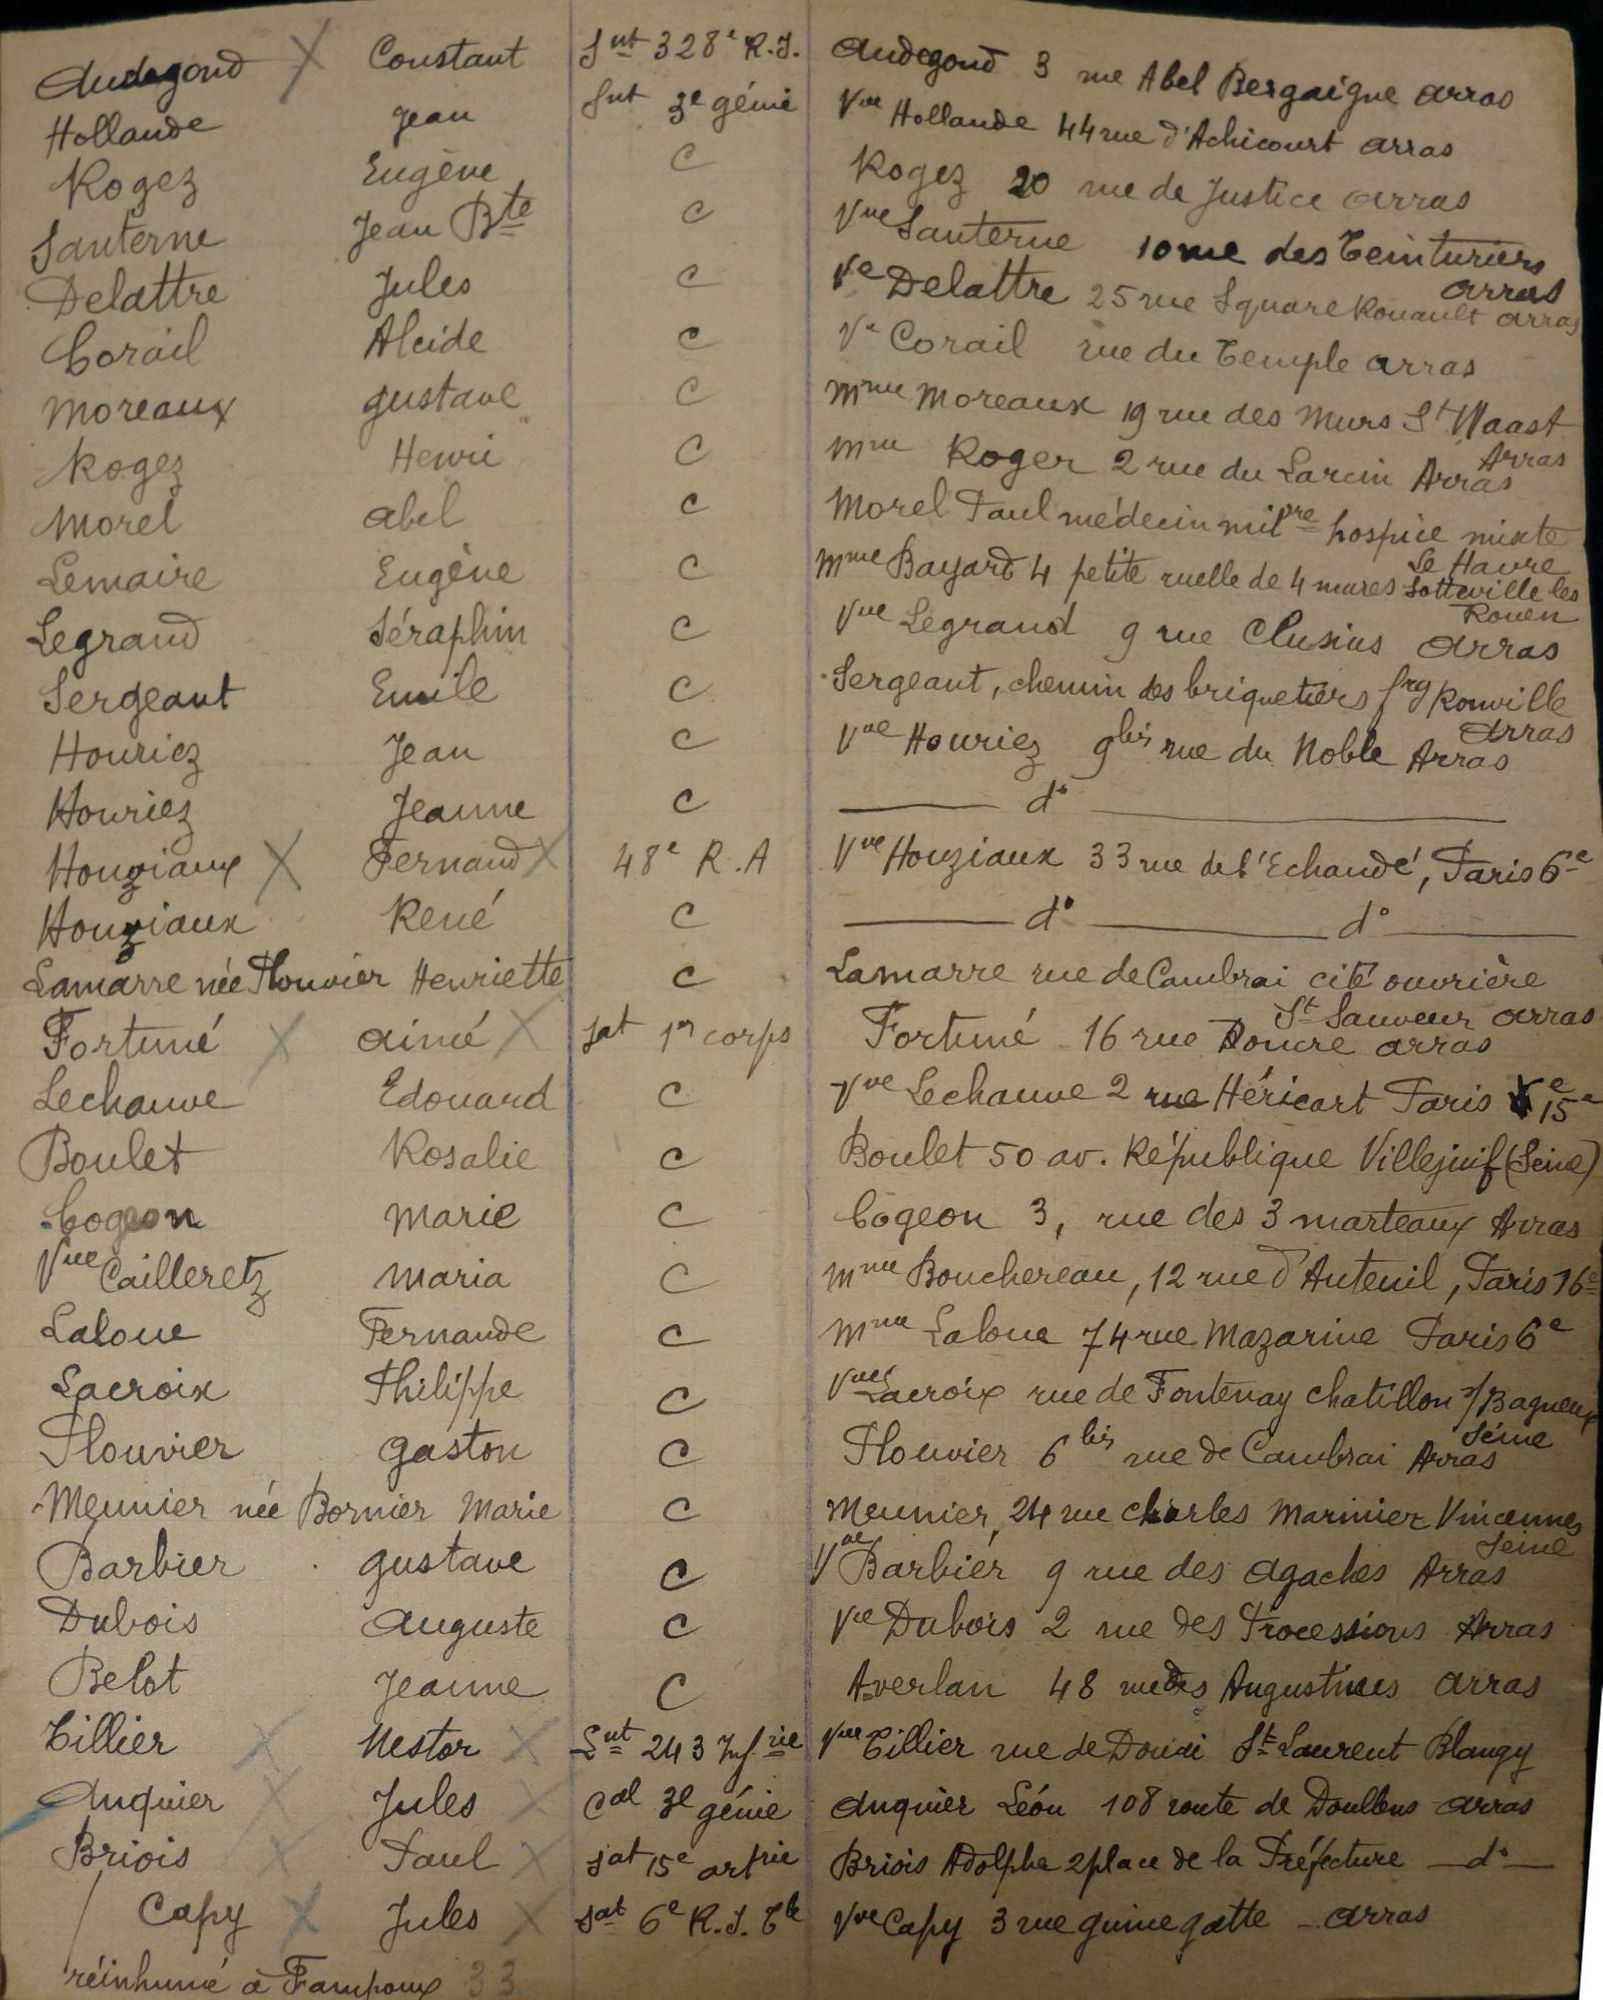 Audegond X Constant Snt 328e R.I. Audegond 3 rue Abel Bergaigne Arras
Hollande Jean Snt 3e génie Vve Hollande 44 rue d'Achicourt Arras
Rogez Eugène C Rogez 20 rue de Justice Arras
Santerne Jean Bte C Vve Santerne 10 rue des Teinturiers Arras
Delattre Jules C Ve Delattre 25 rue Square Rouault Arras
Corail Alcide C Ve Corail rue du Temple Arras
Moreaux Gustave C Mme Moreaux 19 rue des Murs St Waast Arras
Rogez Henri C Mme Roger 2 rue du Larcin Arras
Morel Abel C Morel Paul médecin milre hospice mixte Le Havre
Lemaire Eugène C Mme Bayard 4 petite ruelle de 4 mares Sotteville les Rouen
Legrand Séraphin C Vve Legrand 9 rue Clusius Arras
Sergeant Emile C Sergeant, chemin des briquetiers frg Ronville Arras
Houriez Jean C Vve Houriez 9bis rue du Noble Arras
Houriez Jeanne C do
Houziaux X Fernand X 48e R.A Vve Houziaux 33 rue de l'Echaudé, Paris 6e
Houziaux René C do do
Lamarre née Plouvier Henriette C Lamarre rue de Cambrai cité ouvrière St Sauveur Arras
Fortuné X Aimé X Sat 1er corps Fortuné 16 rue Doncre Arras
Lechauve Edouard C Vve Lechauve 2 rue Héricart Paris 15e
Boulet Rosalie C Boulet 50 av. République Villejuif (Seine)
Cogeon Marie C Cogeon 3, rue des 3 marteaux Arras
Vve Cailleretz Maria C Mme Bouchereau, 12 rue d'Auteuil, Paris 16e
Laloue Fernande C Mme Laloue 74 rue Mazarine Paris 6e
Lacroix Philippe C Vve Lacroix rue de Fontenay Chatillon s/Bagneux Seine
Plouvier Gaston C Plouvier 6bis rue de Cambrai Arras
Meunier née Bornier Marie C Meunier, 24 rue Charles Marinier Vincennes Seine
Barbier Gustave C Vve Barbier 9 rue des Agaches Arras
Dubois Auguste C Vve Dubois 2 rue des Processions Arras
Belot Jeanne C Averlan 48 rue des Augustines Arras
Tillier X Nestor X Snt 243 Infrie Vve Tillier rue de Douai St Laurent Blangy
Anquier X Jules X Cal 3e génie Anquier Léon 108 route de Doullens Arras
Briois X Paul X Sat 15e artrie Briois Adolphe 2 place de la Préfecture do
Capy X Jules X Sat 6e R.I. Tle Vve Capy 3 rue Guinegatte Arras
réinhumé à Fampoux 33